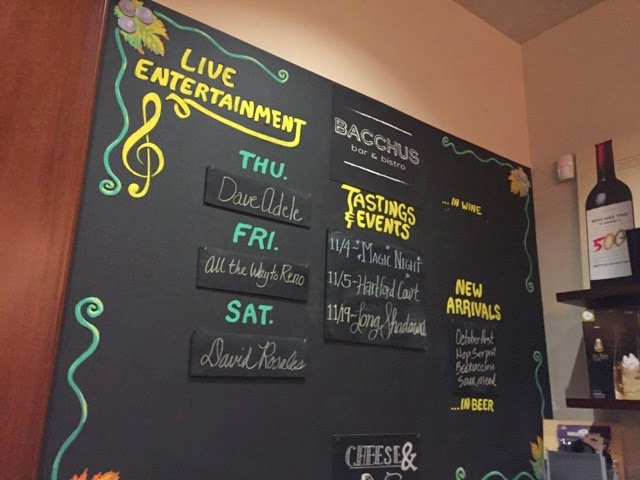 LIVE
ENTERTAINMENT
THU.
Dave Adele
FRI.
All the Way to Reno
SAT.
David Rosales
BACCHUS
bar & bistro
TASTINGS
& EVENTS
11/4~ Magic Night
11/5~ Hartford Court
11/19~ Long Shadows
CHEESE &
...IN WINE
NEW
ARRIVALS
Octoberfest
Hop Serpent
Beeruccino
Sour mead
...IN BEER
500